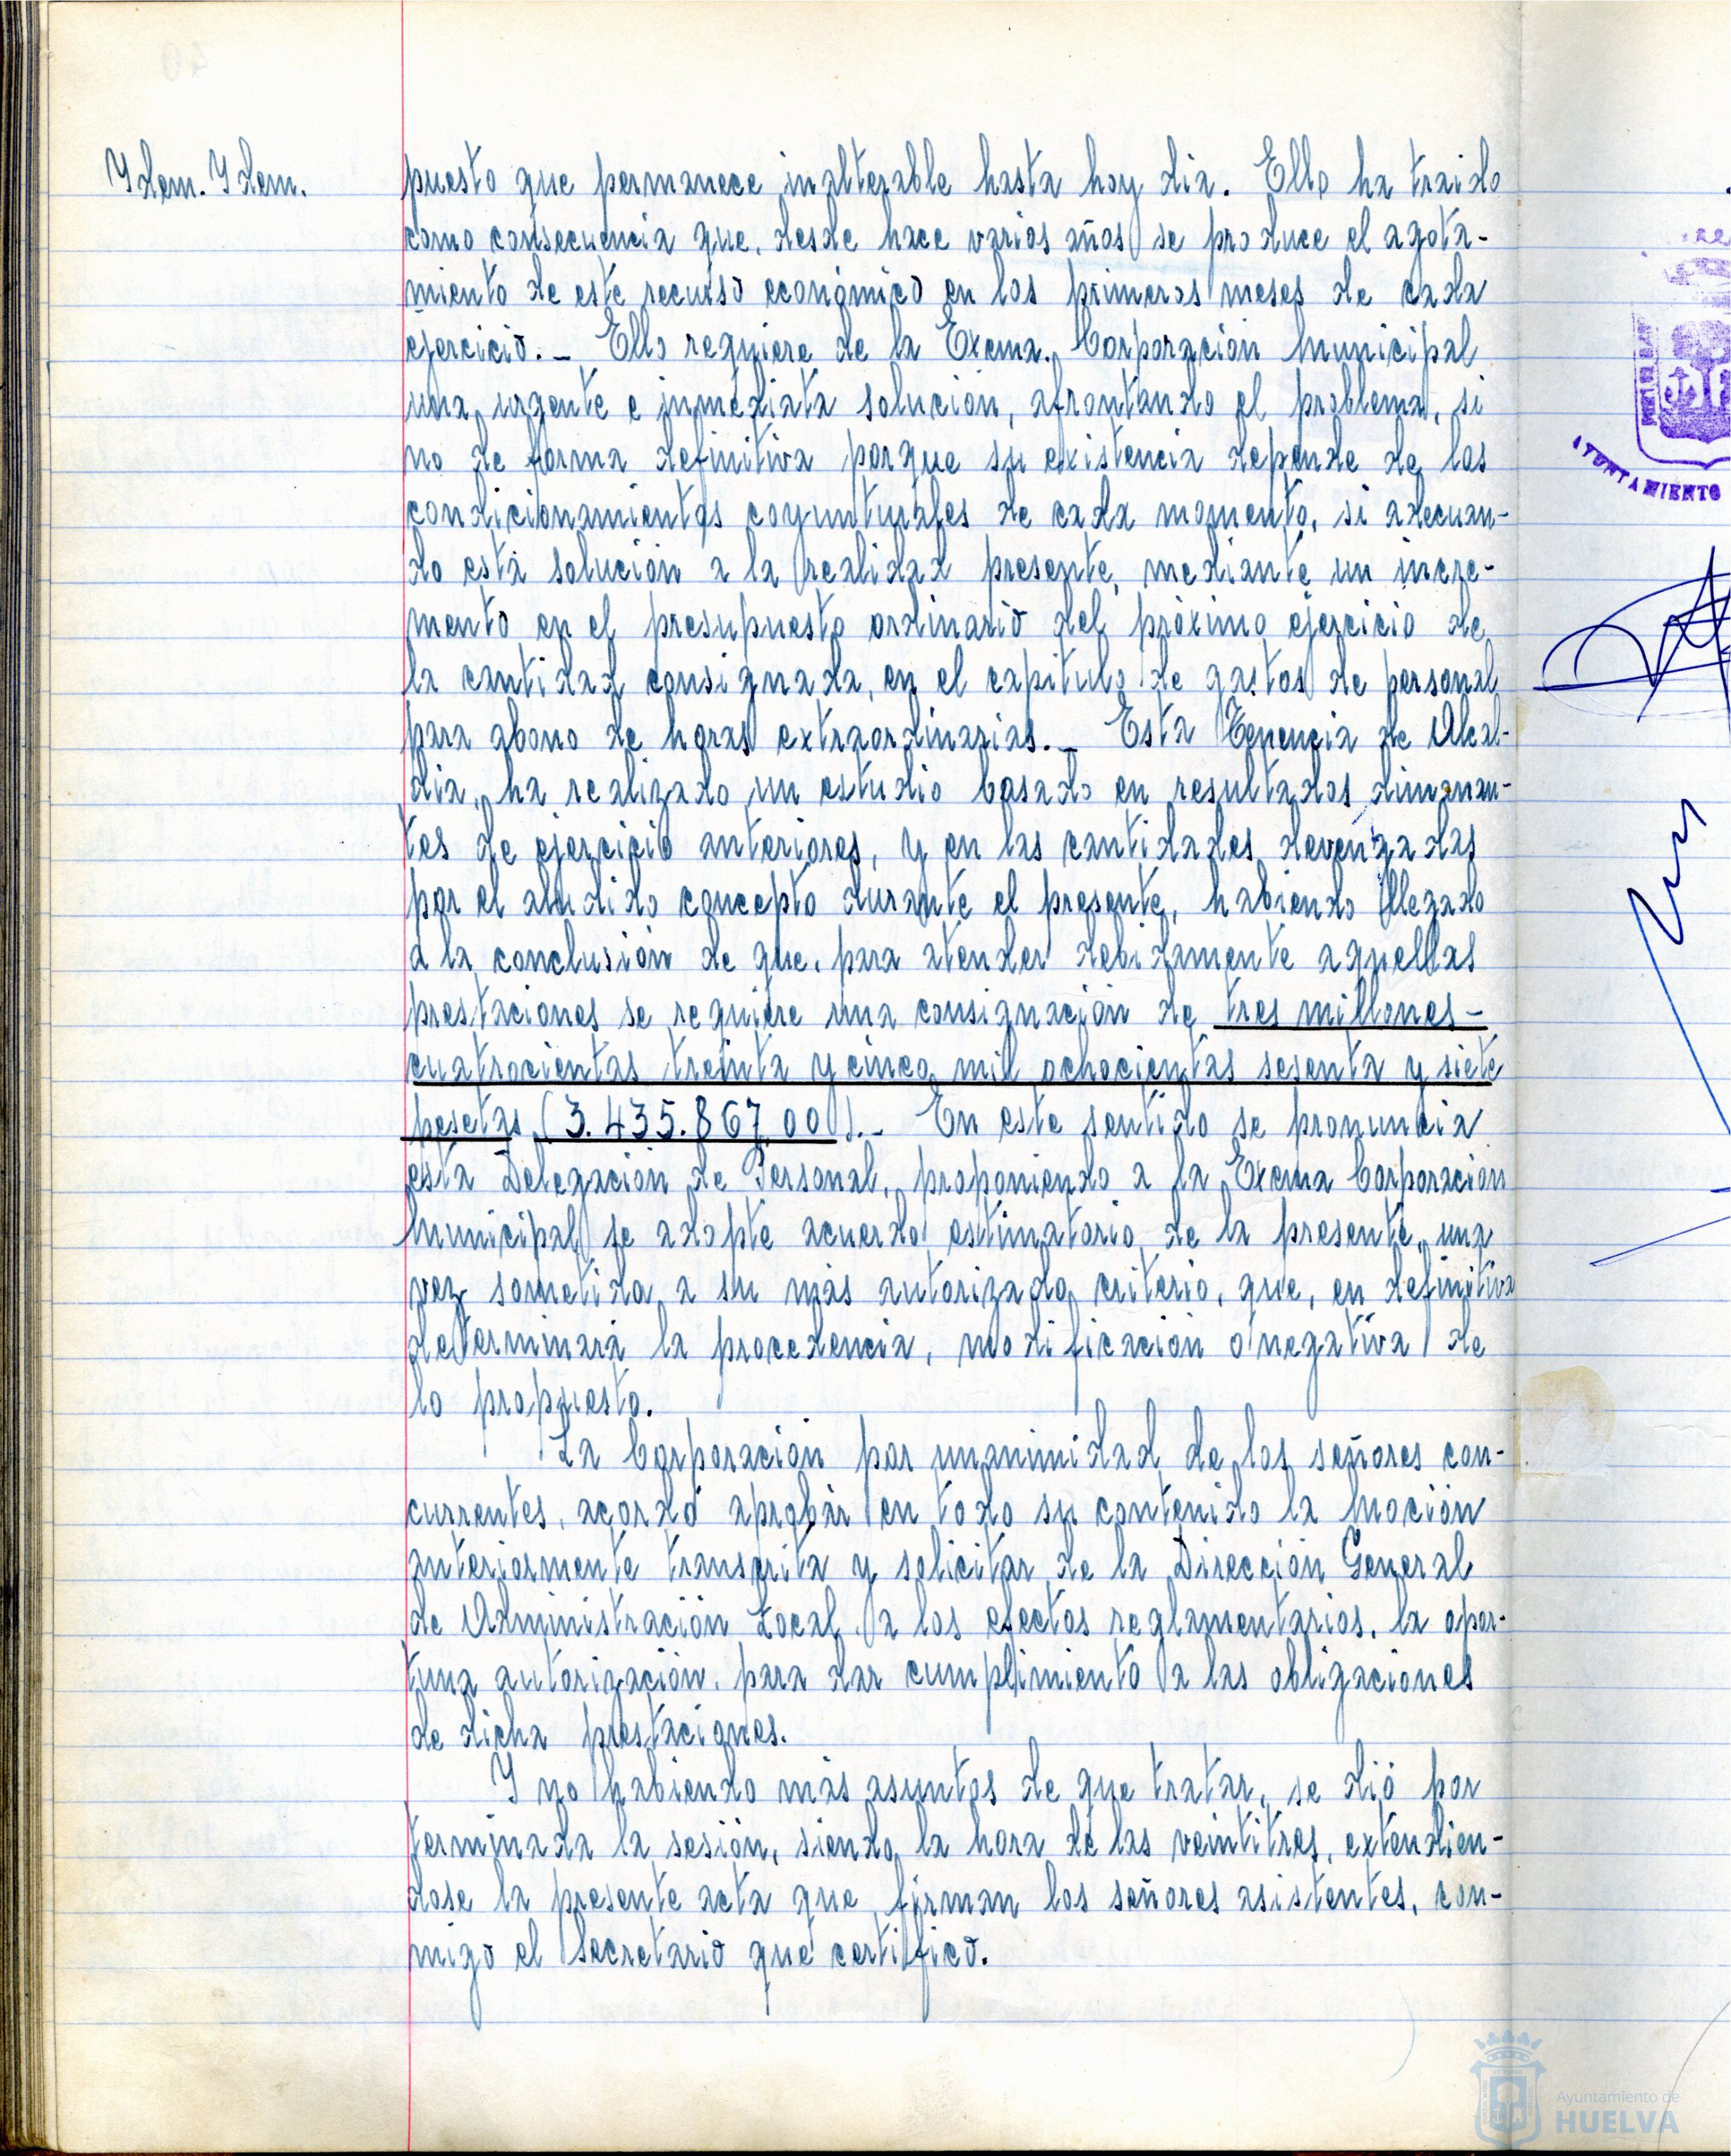 Ydem. Ydem.
puesto que permanece inalterable hasta hoy dia. Ello ha traido
como consecuencia que, desde hace varios años se produce el agota-
miento de este recurso económico en los primeros meses de cada
ejercicio.- Ello requiere de la Excma. Corporación Municipal
una urgente e inmediata solución, afrontando el problema, si
no de forma definitiva porque su existencia depende de los
condicionamientos coyunturales de cada momento, si adecuan-
do esta solución a la realidad presente, mediante un incre-
mento en el presupuesto ordinario del próximo ejercicio de
la cantidad consignada, en el capitulo de gastos de personal
para abono de horas extraordinarias.- Esta Tenencia de Alcal-
dia, ha realizado un estudio basado en resultados dimanan-
tes de ejercicio anteriores, y en las cantidades devengadas
por el aludido concepto durante el presente, habiendo llegado
a la conclusión de que, para atender debidamente aquellas
prestaciones se requiere una consignación de tres millones-
cuatrocientas treinta y cinco mil ochocientas sesenta y siete
pesetas (3.435.867,00).- En este sentido se pronuncia
esta Delegación de Personal, proponiendo a la Excma Corporación
Municipal se adopte acuerdo estimatorio de la presente, una
vez sometida a su más autorizado criterio, que, en definitiva
determinará la procedencia, modificación o negativa de
lo propuesto.
La Corporación por unanimidad de los señores con-
currentes, acordó aprobar en todo su contenido la Moción
anteriormente transcrita y solicitar de la Dirección General
de Administración Local, a los efectos reglamentarios, la opor-
tuna autorización, para dar cumplimiento a las obligaciones
de dicha prestaciones.
Y no habiendo más asuntos de que tratar, se dió por
terminada la sesión, siendo la hora de las veintitres, extendien-
dose la presente acta que firman los señores asistentes, con-
migo el Secretario que certifico.
AYUNTAMIENTO
Ayuntamiento de
HUELVA